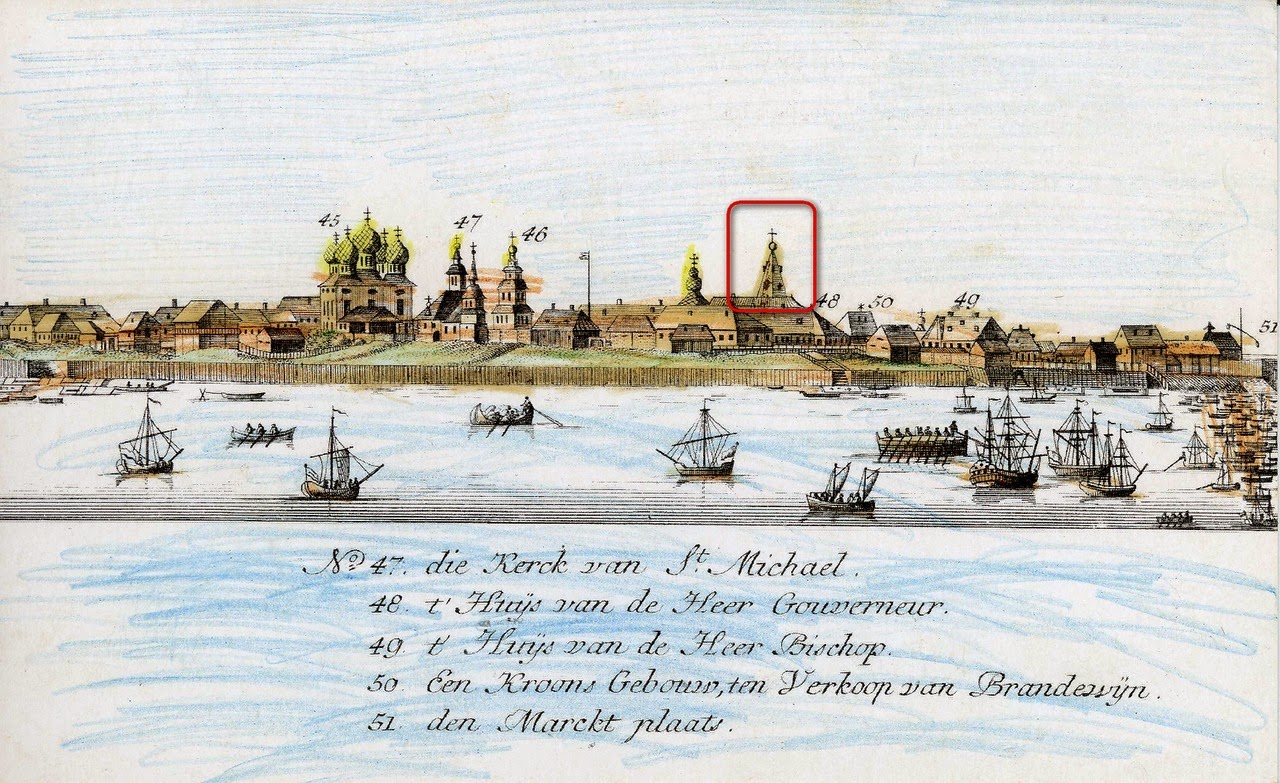 45 47 46
48 50 49 51
Nº 47. die Kerck van St. Michael.
48. t' Huÿs van de Heer Gouverneur.
49. t' Huÿs van de Heer Bischop.
50. Een Kroons Gebouw, ten Verkoop van Brandewÿn.
51 den Marckt plaats.